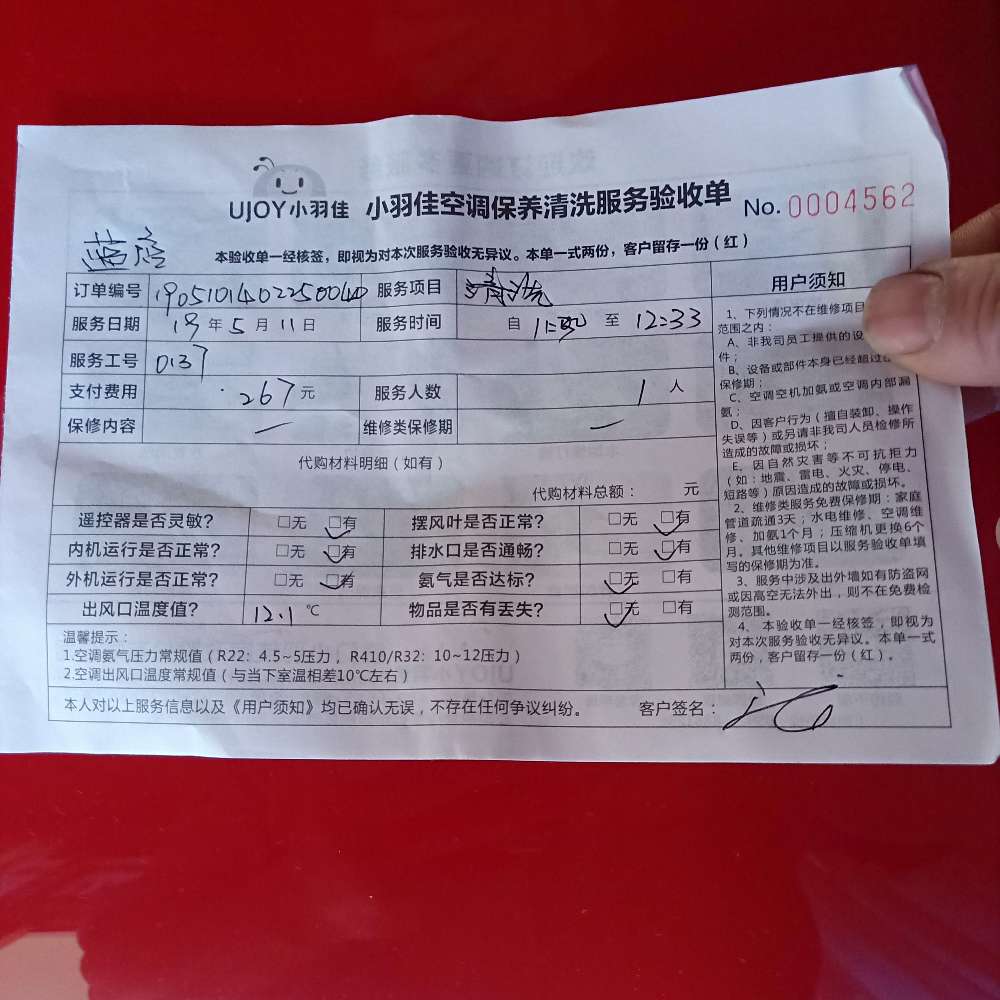 UJOY小羽佳 小羽佳空调保养清洗服务验收单 No. 0004562
本验收单一经核签，即视为对本次服务验收无异议。本单一式两份，客户留存一份（红）
订单编号 1905101402250040 服务项目 清洗
服务日期 19年5月11日 服务时间 自 至 12:33
服务工号 0137
支付费用 267元 服务人数 1人
保修内容 — 维修类保修期 —
代购材料明细（如有）
代购材料总额： 元
遥控器是否灵敏? □无 □有 摆风叶是否正常? □无 □有
内机运行是否正常? □无 □有 排水口是否通畅? □无 □有
外机运行是否正常? □无 □有 氨气是否达标? □无 □有
出风口温度值? 12.1 ℃ 物品是否有丢失? □无 □有
温馨提示：
1.空调氨气压力常规值（R22：4.5~5压力， R410/R32：10~12压力）
2.空调出风口温度常规值（与当下室温相差10℃左右）
本人对以上服务信息以及《用户须知》均已确认无误，不存在任何争议纠纷。 客户签名：
用户须知
1、下列情况不在维修项目
范围之内：
A、非我司员工提供的设
件；
B、设备或部件本身已经超过
保修期；
C、空调空机加氨或空调内部漏
氨；
D、因客户行为（擅自装卸、操作
失误等）或另请非我司人员检修所
造成的故障或损坏；
E、因自然灾害等不可抗拒力
（如：地震、雷电、火灾、停电、
短路等）原因造成的故障或损坏。
2、维修类服务免费保修期：家庭
管道疏通3天；水电维修、空调维
修、加氨1个月；压缩机更换6个
月。其他维修项目以服务验收单填
写的保修期为准。
3、服务中涉及出外墙如有防盗网
或因高空无法外出，则不在免费检
测范围。
4、本验收单一经核签，即视为
对本次服务验收无异议。本单一式
两份，客户留存一份（红）。